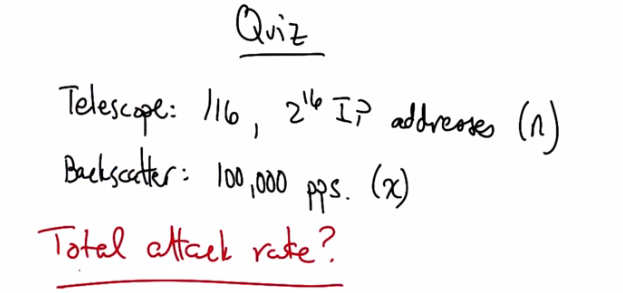 Quiz
Telescope: /16, 2^16 IP addresses (n)
Backscatter: 100,000 pps. (x)
Total attack rate?